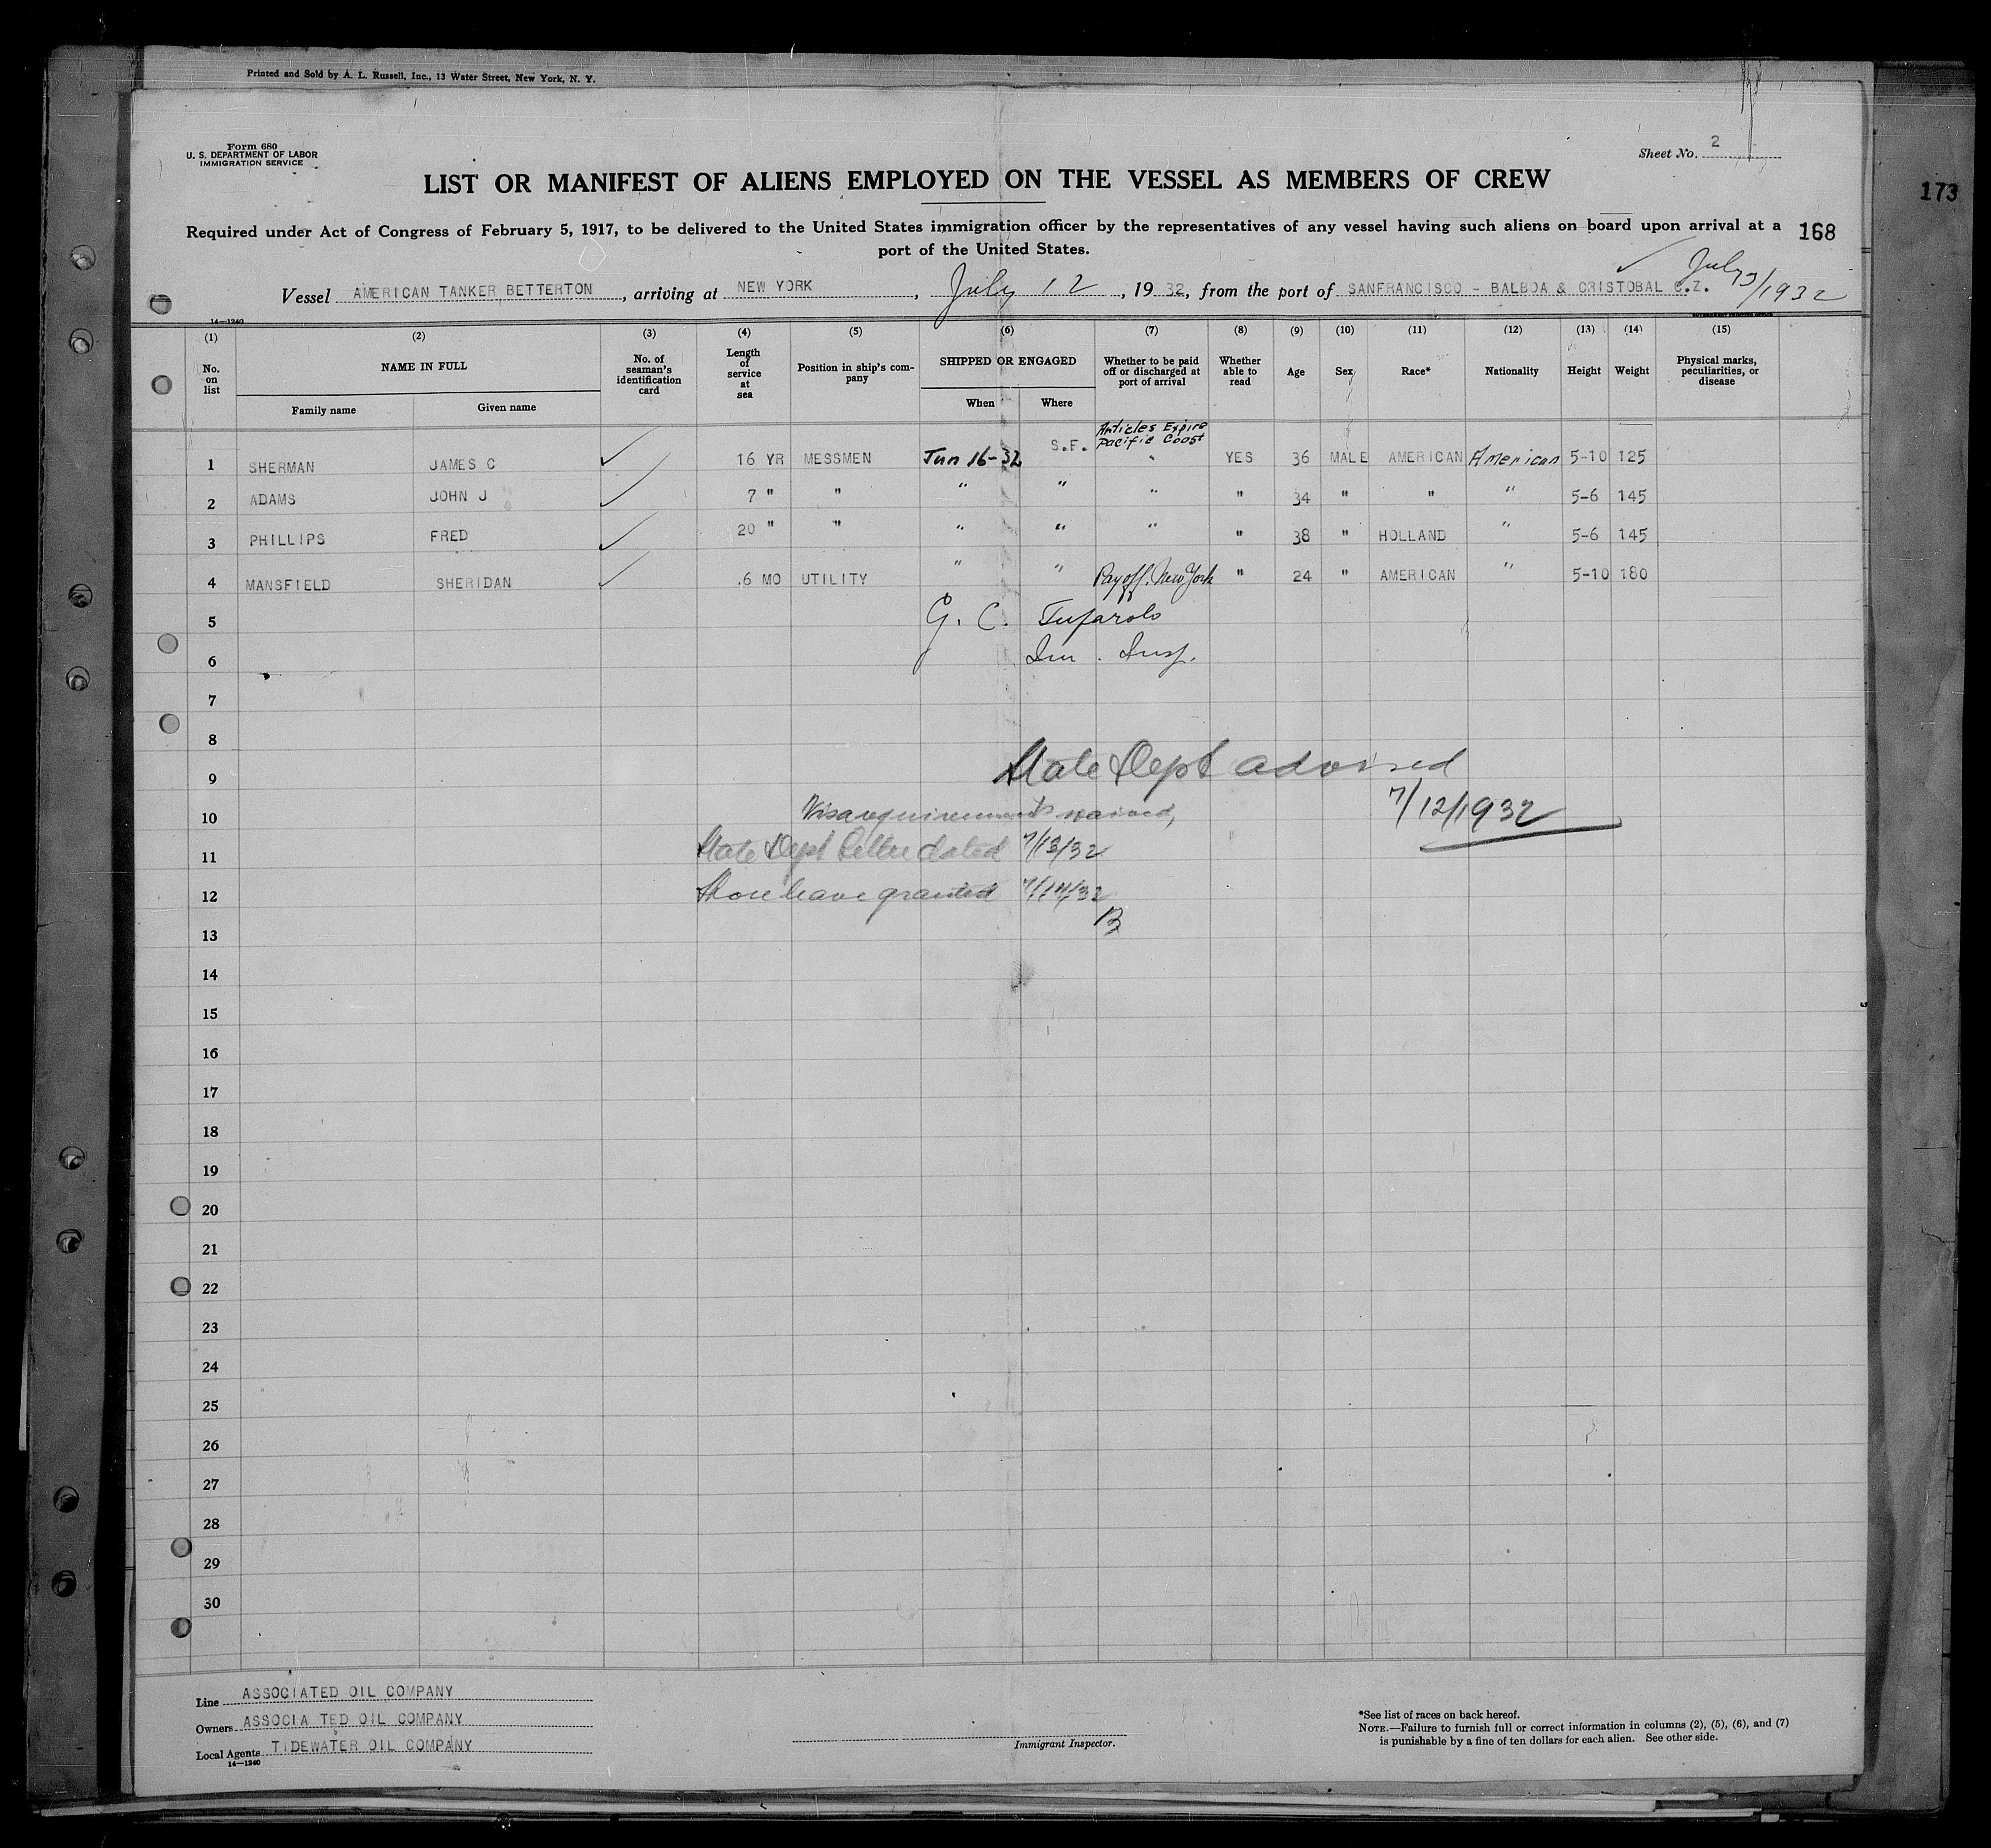 Printed and Sold by A. L. Russell, Inc., 13 Water Street, New York, N. Y.
Form 680
U. S. DEPARTMENT OF LABOR
IMMIGRATION SERVICE
Sheet No. 2
LIST OR MANIFEST OF ALIENS EMPLOYED ON THE VESSEL AS MEMBERS OF CREW
173
Required under Act of Congress of February 5, 1917, to be delivered to the United States immigration officer by the representatives of any vessel having such aliens on board upon arrival at a
port of the United States.
168
Vessel AMERICAN TANKER BETTERTON, arriving at NEW YORK, July 12, 1932, from the port of SANFRANCISCO - BALBOA & CRISTOBAL C.Z. July 13/1932
14-1240
(1) (2) (3) (4) (5) (6) (7) (8) (9) (10) (11) (12) (13) (14) (15)
No. on list
NAME IN FULL
Family name
Given name
No. of seaman's identification card
Length of service at sea
Position in ship's com-
pany
SHIPPED OR ENGAGED
When
Where
Whether to be paid off or discharged at port of arrival
Whether able to read
Age
Sex
Race*
Nationality
Height
Weight
Physical marks, peculiarities, or disease
Articles Expire
Pacific Coast
1 SHERMAN JAMES C 16 YR MESSMEN Jun 16-32 S.F. " YES 36 MALE AMERICAN American 5-10 125
2 ADAMS JOHN J 7 " " " " " " 34 " " " 5-6 145
3 PHILLIPS FRED 20 " " " " " " 38 " HOLLAND " 5-6 145
4 MANSFIELD SHERIDAN .6 MO UTILITY " " Payoff. New York " 24 " AMERICAN " 5-10 180
5 G. C. Tufarolo
6 Im. Insp.
7
8
9 State Dept advised
7/12/1932
10 Visa requirements waived,
11 State Dept letter dated 7/13/32
12 Shore leave granted 7/14/32
13
14
15
16
17
18
19
20
21
22
23
24
25
26
27
28
29
30
Line ASSOCIATED OIL COMPANY
Owners ASSOCIA TED OIL COMPANY
Local Agents TIDEWATER OIL COMPANY
14-1240
Immigrant Inspector.
*See list of races on back hereof.
NOTE.—Failure to furnish full or correct information in columns (2), (5), (6), and (7)
is punishable by a fine of ten dollars for each alien. See other side.